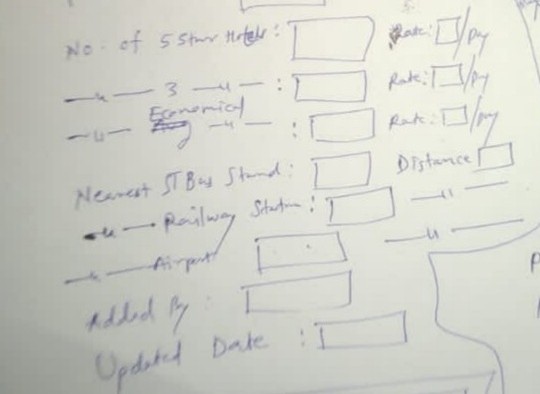 No. of 5 Star Hotels: Rate: /Day
—〃— 3 —〃— : Rate: /Day
—〃— Economical —〃— : Rate: /Day
Nearest ST Bus Stand: Distance
—〃— Railway Station: —〃—
—〃— Airport —〃—
Added By :
Updated Date :